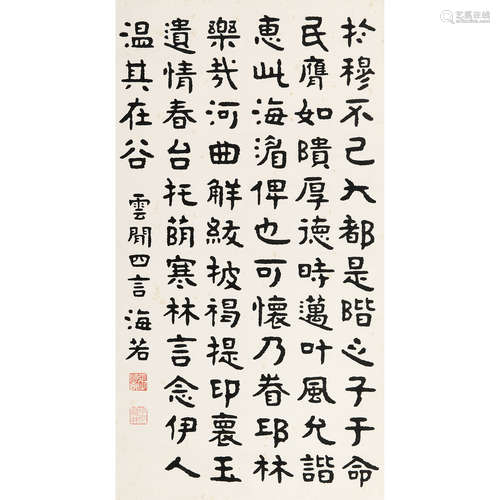 扵穆不已大都是階之子于命
民膺如隤厚德時邁叶風允諧
惠此海湄俾也可懷乃眷邛林
樂哉河曲觧紱披褐提印褱玉
遺情春台托荫寒林言念伊人
温其在谷
雲閒四言 海若